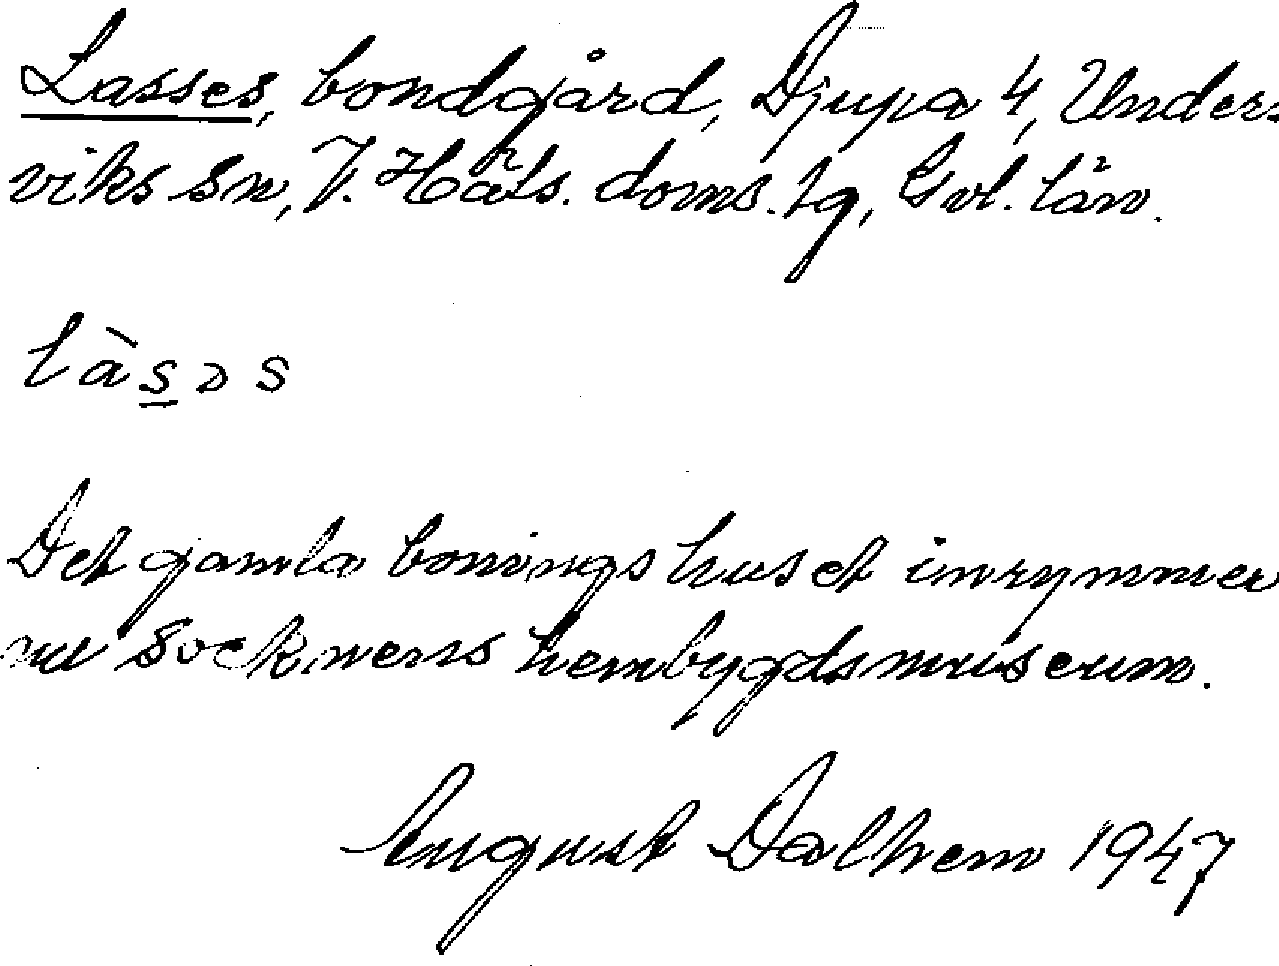 Lasses, bondgård, Djupa 4, Under-
viks sn, V. Häls. doms. tg, Gvl. län.
làsɔs
Det gamla boningshuset inrymmer
nu socknens hembygdsmuseum.
August Dalhem 1947